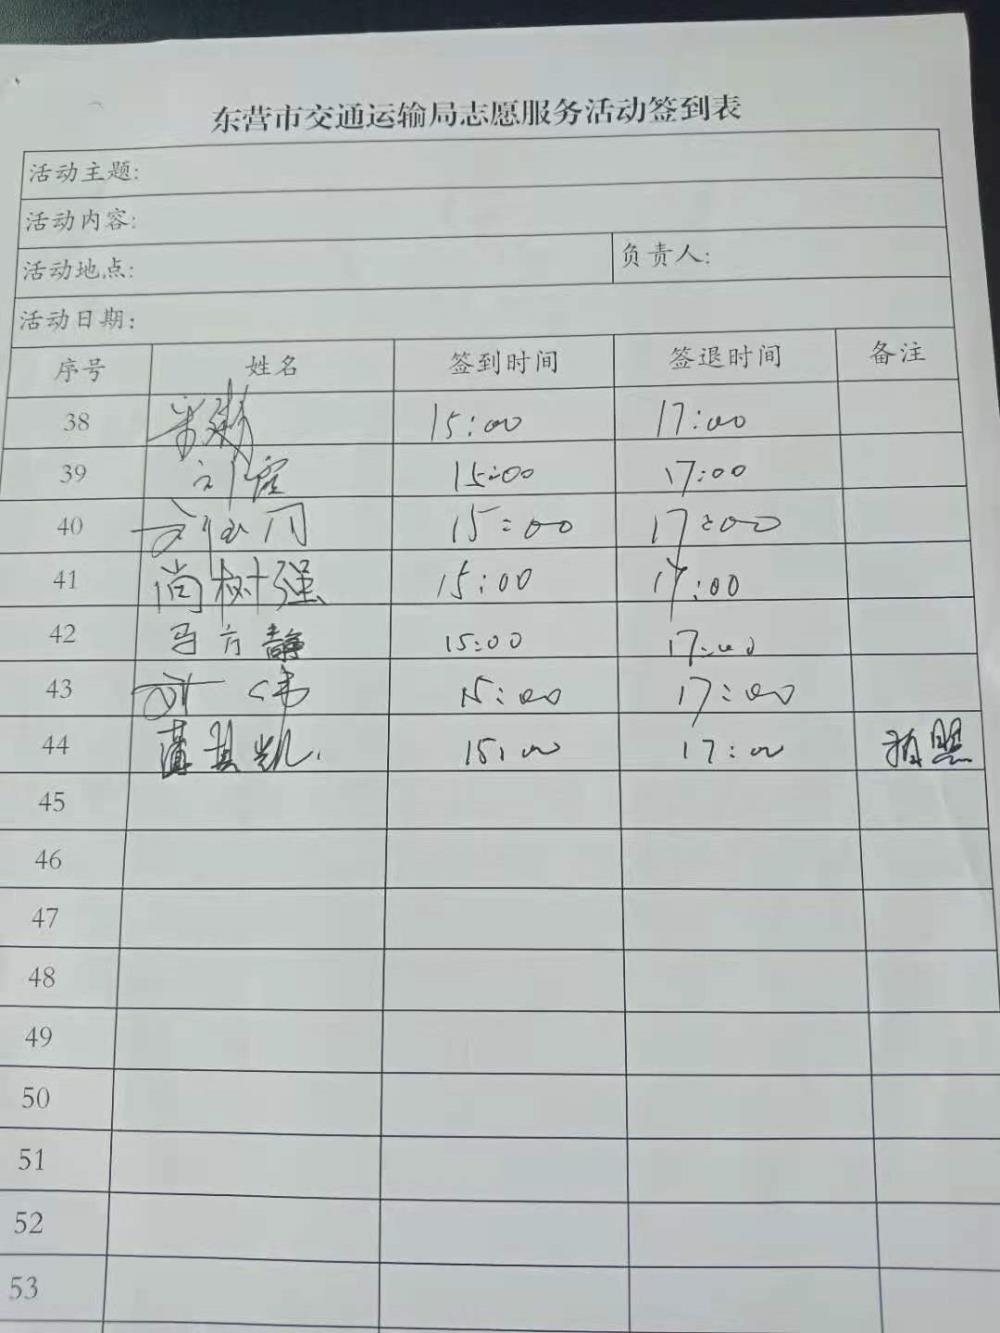 东营市交通运输局志愿服务活动签到表
活动主题:
活动内容:
活动地点: 负责人:
活动日期:
序号 姓名 签到时间 签退时间 备注
38 15:00 17:00
39 刘 15:00 17:00
40 15:00 17:00
41 尚树强 15:00 17:00
42 马方静 15:00 17:00
43 伟 15:00 17:00
44 薄其凯 15:00 17:00
45
46
47
48
49
50
51
52
53